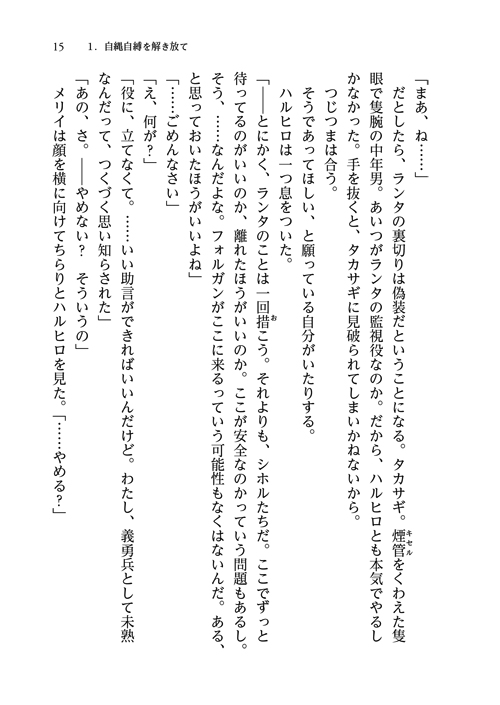 15　1．自縄自縛を解き放て
「まあ、ね……」
　だとしたら、ランタの裏切りは偽装だということになる。タカサギ。煙管をくわえた隻
眼で隻腕の中年男。あいつがランタの監視役なのか。だから、ハルヒロとも本気でやるし
かなかった。手を抜くと、タカサギに見破られてしまいかねないから。
　つじつまは合う。
　そうであってほしい、と願っている自分がいたりする。
　ハルヒロは一つ息をついた。
「――とにかく、ランタのことは一回措こう。それよりも、シホルたちだ。ここでずっと
待ってるのがいいのか、離れたほうがいいのか。ここが安全なのかっていう問題もあるし。
そう、……なんだよな。フォルガンがここに来るっていう可能性もなくはないんだ。ある、
と思っておいたほうがいいよね」
「……ごめんなさい」
「え、何が？」
「役に、立てなくて。……いい助言ができればいいんだけど。わたし、義勇兵として未熟
なんだって、つくづく思い知らされた」
「あの、さ。――やめない？　そういうの」
　メリイは顔を横に向けてちらりとハルヒロを見た。「……やめる？」